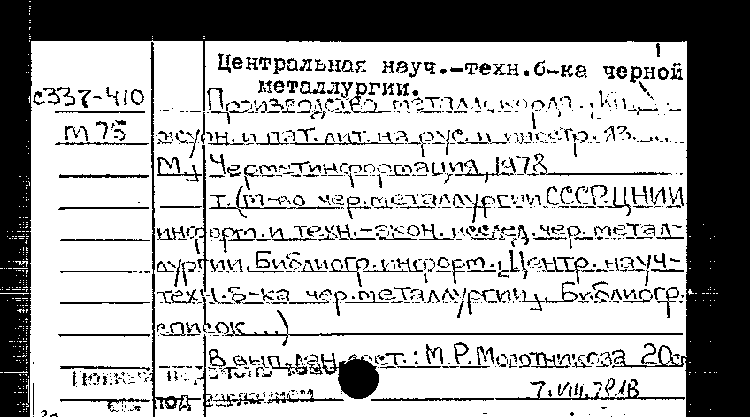 Центральная науч.-техн.б-ка черной
металлургии.
с337-410 Производство металл. корда. Кн.,
М75 журн. и пат. лит. на рус. и иностр. яз. ...
М., Черметинформация, 1978
т. (М-во чер. металлургии СССР. ЦНИИ
информ. и техн.-экон. исслед. чер. метал-
лургии. Библиогр. информ. Центр. науч-
техн. б-ка чер. металлургии, Библиогр.
список...)
В вып. дан. сост.: М.Р. Молотникова 20см
Полный под
см. под заглавием